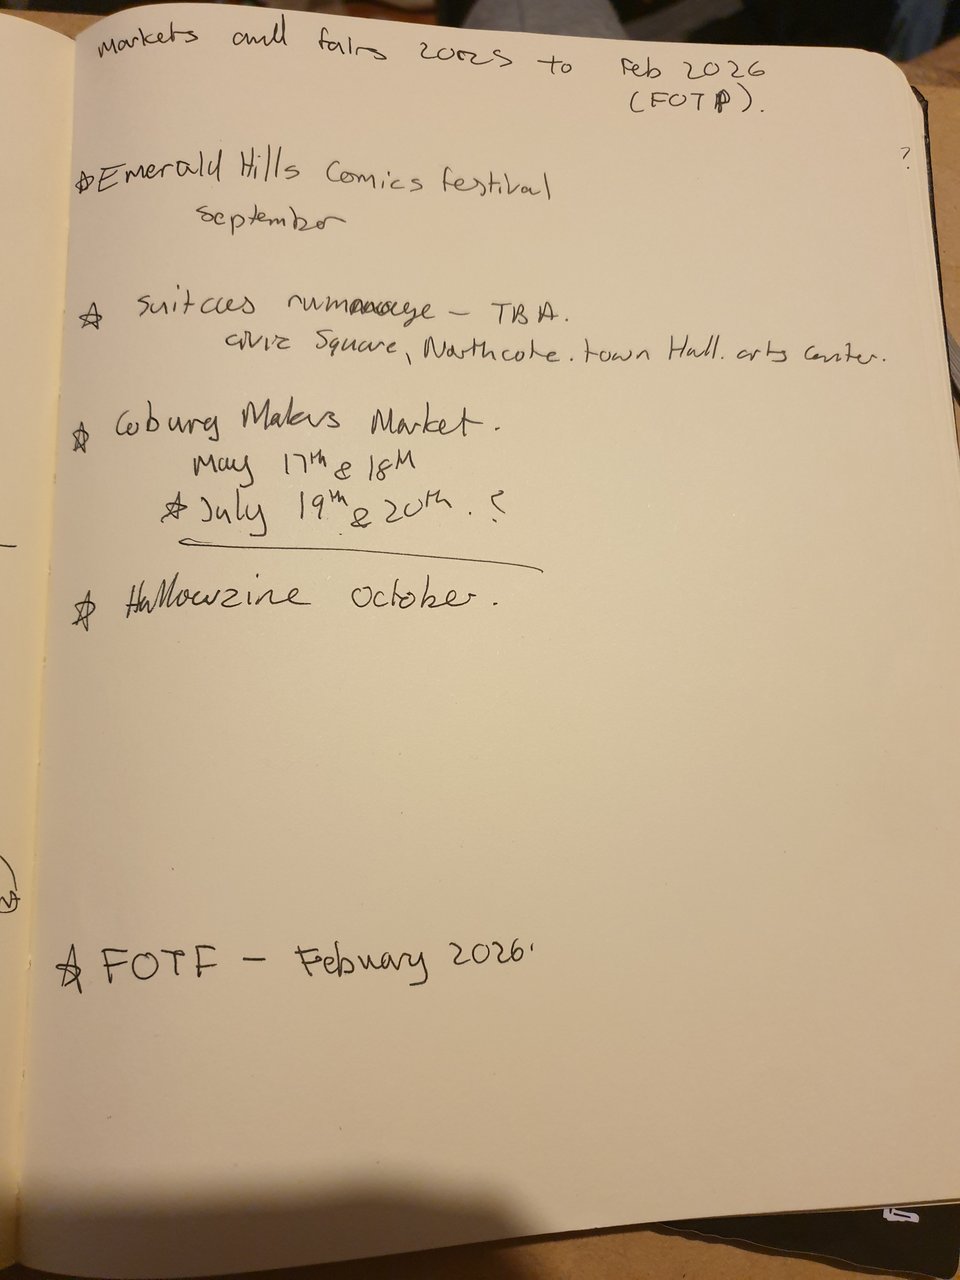 Markets and fairs 2025 to Feb 2026
(FOTP).
?
☆ Emerald Hills Comics festival
September
☆ Suitcas rummage – TBA.
civic Square, Northcote. town Hall. arts center.
☆ Coburg Makers Market.
May 17th & 18th
☆ July 19th & 20th. ?
☆ Hallowzine October.
☆ FOTF – Febuary 2026.